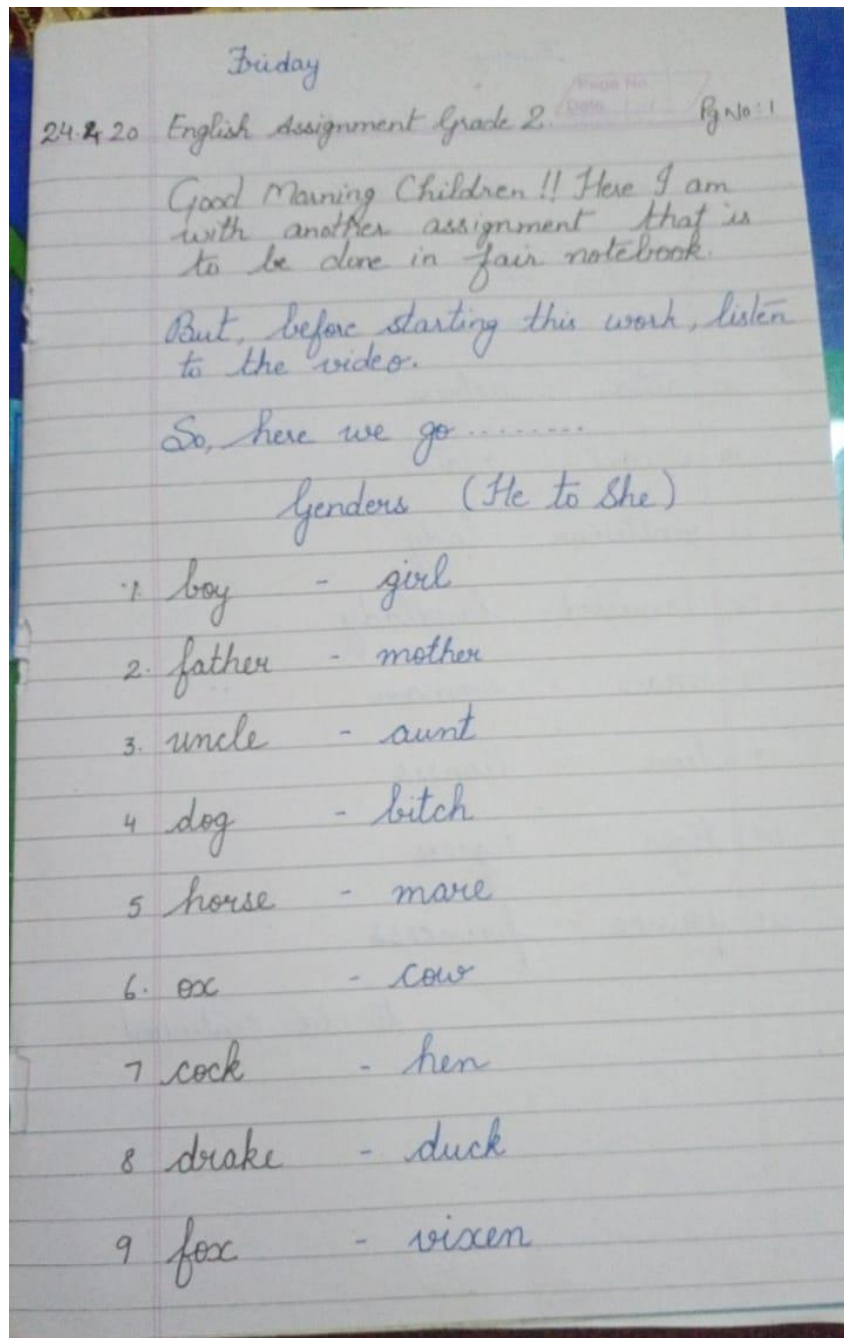 Friday
Page No.
Date
24.4.20 English Assignment Grade 2. Pg No: 1
Good Morning Children !! Here I am
with another assignment that is
to be done in fair notebook.
But, before starting this work, listen
to the video.
So, here we go .........
Genders (He to She)
1. boy - girl
2. father - mother
3. uncle - aunt
4 dog - bitch
5 horse - mare
6. ox - cow
7 cock - hen
8 drake - duck
9 fox - vixen